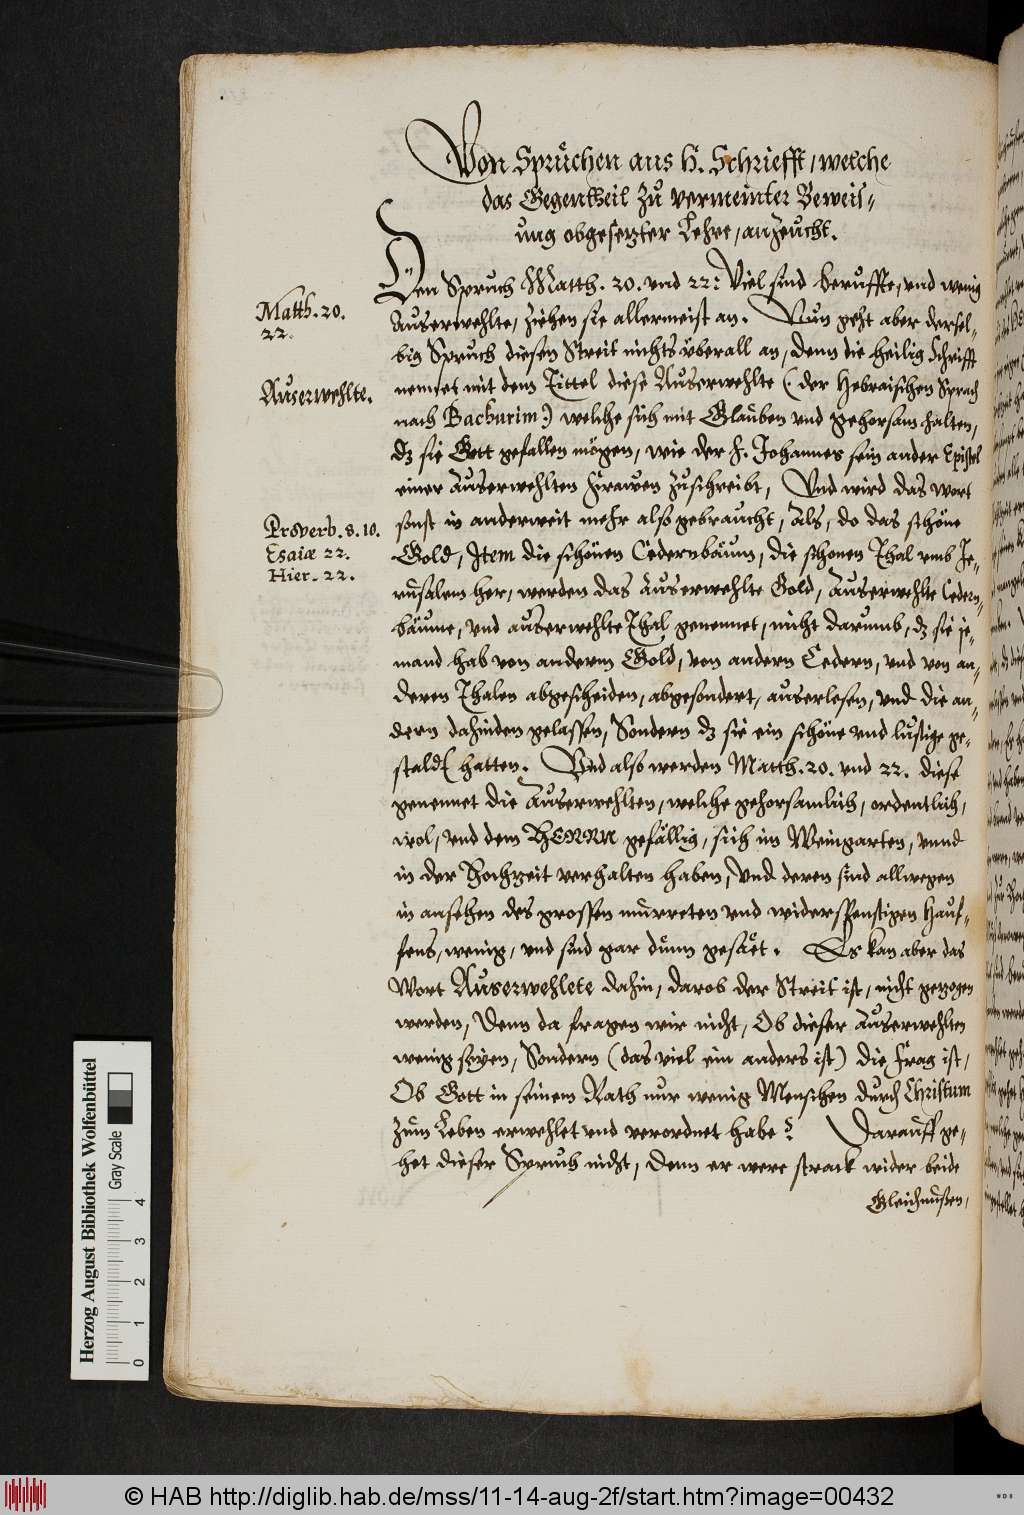 Von Sprüchen aus H. Schriefft, welche
das Gegentheil zu vermeinter Beweis-
ung obgesetzter Lehre, anzeucht.
Den Spruch Matth. 20. vnd 22: Viel sind beruffte, vnd wenig
Auserwehlte, ziehen sie allermeist an. Nun geht aber dersel-
big Spruch diesen Streit nichts vberall an, denn die heilig Schrifft
nennet mit dem Tittel diese Auserwehlte (: der Hebraischen Sprach
nach Bachurim:) welche sich mit Glauben vnd gehorsam halten,
dz sie Gott gefallen mögen, wie der H. Johannes sein ander Epistel
einer Auserwehlten Frawen zuschreibt, Vnd wird das Wort
sonst in anderweit mehr also gebraucht, Als, do das schöne
Gold, Item die schönen Cedernbäum, die schonen Thal vmb Je-
rusalem her, werden das Auserwehlte Gold, Auserwehlte Cedern-
bäume, vnd auserwehlte Thal genennet, nicht darumb, dz sie je-
mand hab von anderm Gold, von andern Cedern, vnd von an-
deren Thalen abgescheiden, abgesondert, auserlesen, vnd die an-
dern dahinden gelassen, Sondern dz sie ein schöne vnd lustige ge-
staldt hatten. Vnd also werden Matth. 20. vnd 22. diese
genennet die Auserwehlten, welche gehorsamlich, ordentlich,
wol, vnd dem HERRN gefällig, sich im Weingarten, vnnd
in der Hochzeit verhalten haben, Vnd deren sind allwegen
in ansehen des grossen murreten vnd widerspenstigen Hauf-
fens, wenig, vnd sind gar dünn gesäet. Es kan aber das
Wort Auserwehlete dahin, darob der Streit ist, nicht gezogen
werden, Denn da fragen wir nicht, Ob dieser Auserwehlten
wenig seyen, Sondern (das viel ein anders ist) die Frag ist,
Ob Gott in seinem Rath nur wenig Menschen durch Christum
zum Leben erwehlet vnd verordnet habe? Darauff ge-
het dieser Spruch nicht, denn er were strack wider beide
Gleichnussen,
Matth. 20.
22.
Auserwehlte.
Proverb. 8. 10.
Esaiæ 22.
Hier. 22.
Herzog August Bibliothek Wolfenbüttel
Gray Scale
0 1 2 3 4
© HAB http://diglib.hab.de/mss/11-14-aug-2f/start.htm?image=00432